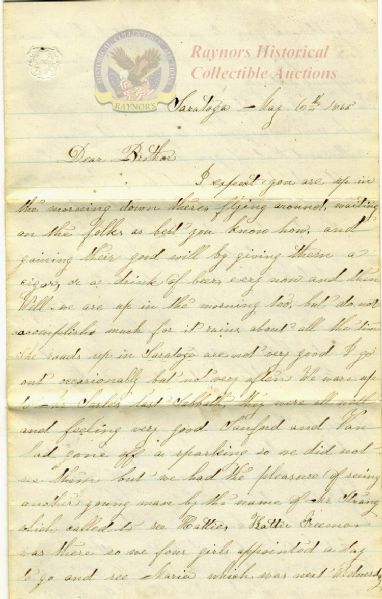 Raynors Historical
Collectible Auctions
HISTORICAL COLLECTIBLE AUCTIONS
RAYNOR'S
Saratoga - May 6th 1865
Dear Brother
I expect you are up in
the morning down there, flying around, waiting
on the folks as best you know how, and
gaining their good will by giving them a
cigar, or a drink of beer, every now and then
Well we are up in the morning too, but do not
accomplish much for it rains about all the time
The roads up in Saratoga are not very good I go
out occasionally but not very often We was up
to the last Sabbath, they were all well
and feeling very good Sanford and Van
had gone off a sparking so we did not
see them but we had the pleasure of seeing
another young man by the name of Mr Strang
which called to see Hattie, Hattie Freeman
was there so we four girls appointed a day
to go and see Maria which was next Wednesday